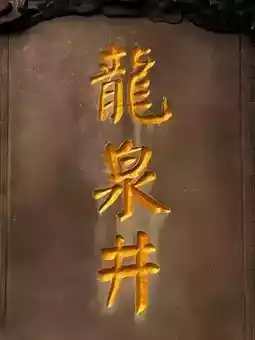 龍泉井